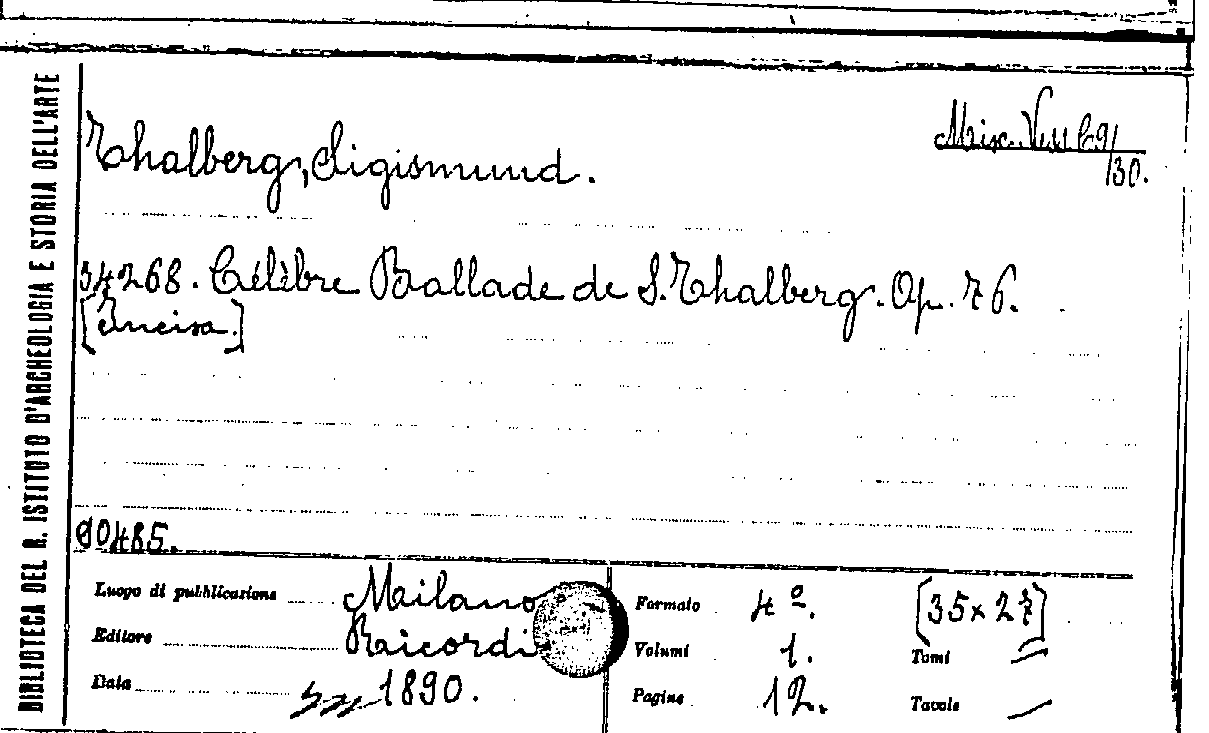 BIBLIOTECA DEL R. ISTITUTO D'ARCHEOLOGIA E STORIA DELL'ARTE
Misc. Vess
/30.
Thalberg, Sigismund.
34268. Célèbre Ballade de S. Thalberg. Op. 76.
[Incisa.]
90485.
Luogo di pubblicazione Milano
Editore Ricordi
Data 1890.
Formato 4º. [35x27]
Volumi 1. Tomi =
Pagine 12. Tavole —